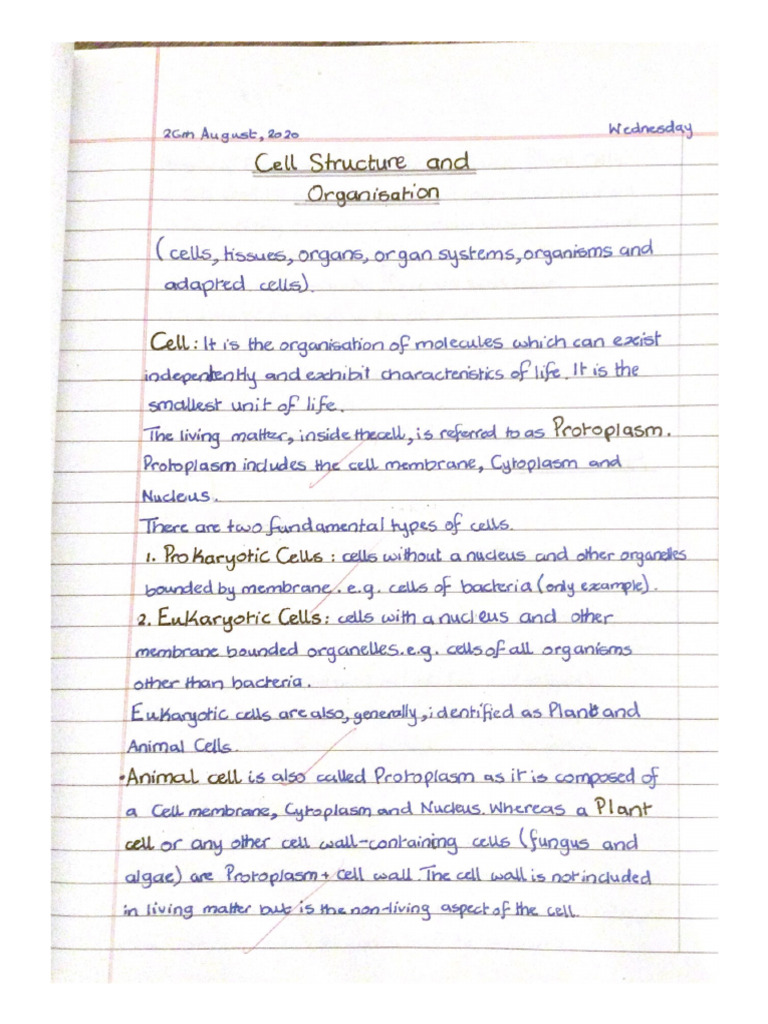 26th August, 2020
Wednesday
Cell Structure and
Organisation
(cells, tissues, organs, organ systems, organisms and
adapted cells).
Cell: It is the organisation of molecules which can exist
indepentently and exhibit characteristics of life. It is the
smallest unit of life.
The living matter, inside the cell, is referred to as Protoplasm.
Protoplasm includes the cell membrane, Cytoplasm and
Nucleus.
There are two fundamental types of cells.
1. Prokaryotic Cells: cells without a nucleus and other organelles
bounded by membrane. e.g. cells of bacteria (only example).
2. Eukaryotic Cells: cells with a nucleus and other
membrane bounded organelles. e.g. cells of all organisms
other than bacteria.
Eukaryotic cells are also, generally, identified as Plant and
Animal Cells.
•Animal cell is also called Protoplasm as it is composed of
a Cell membrane, Cytoplasm and Nucleus. Whereas a Plant
cell or any other cell wall-containing cells (fungus and
algae) are Protoplasm + cell wall. The cell wall is not included
in living matter but is the non-living aspect of the cell.